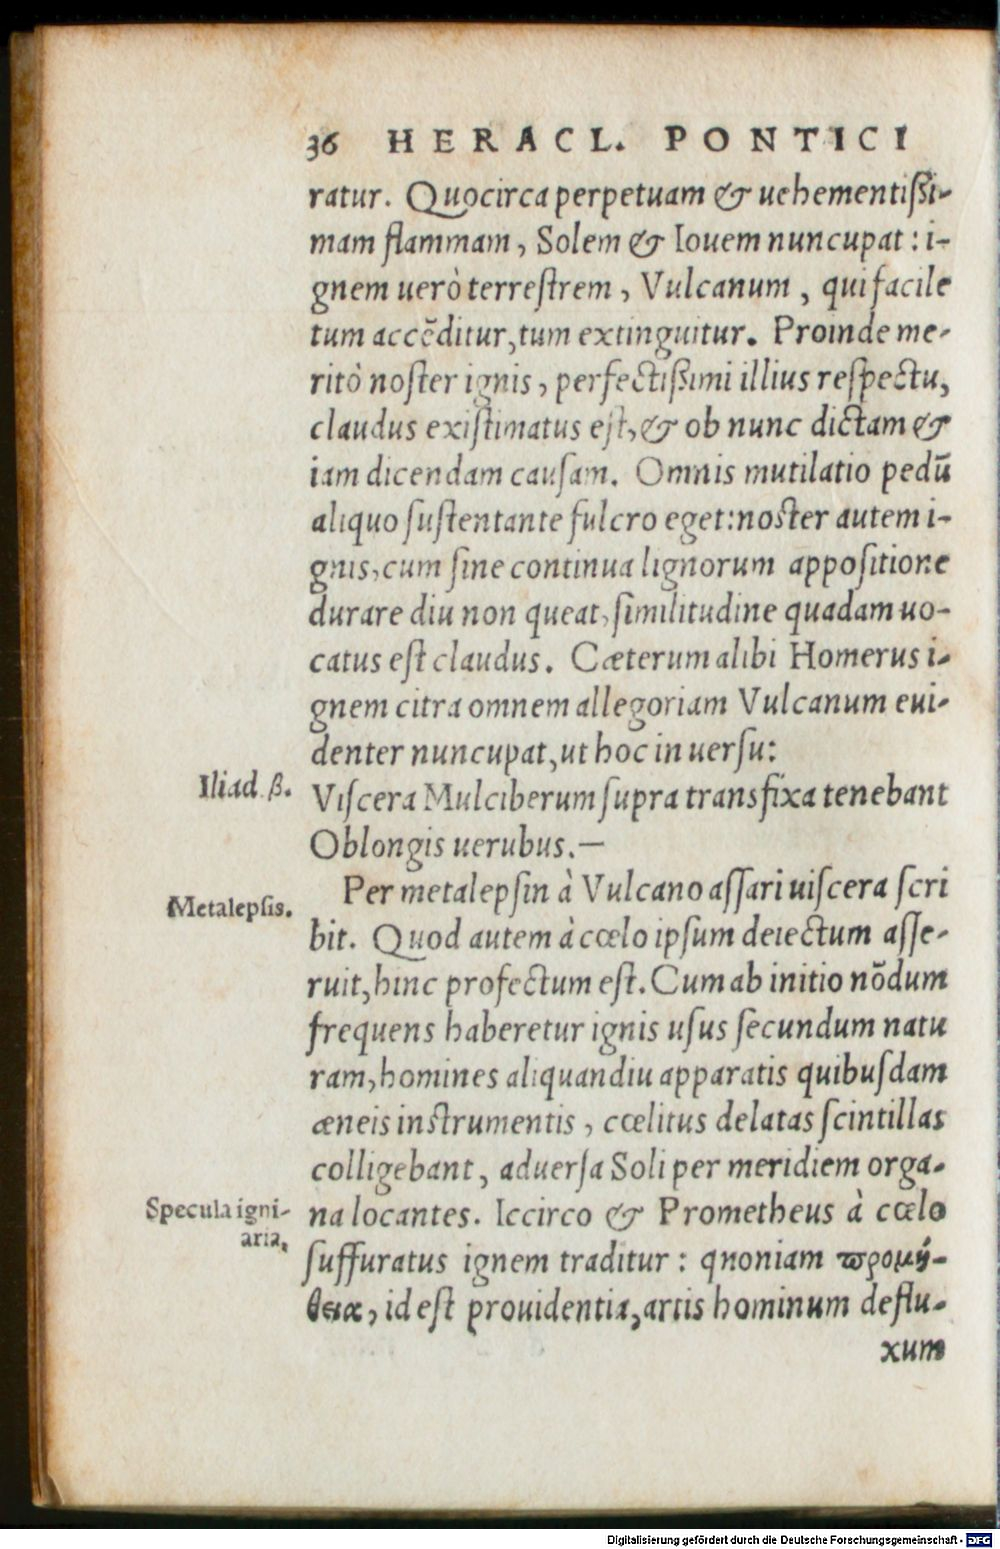 36 HERACL. PONTICI
ratur. Quocirca perpetuam & uehementißi-
mam flammam, Solem & Iouem nuncupat: i-
gnem uerò terreſtrem, Vulcanum, qui facile
tum accēditur, tum extinguitur. Proinde me-
ritò noſter ignis, perfectißimi illius reſpectu,
claudus exiſtimatus eſt, & ob nunc dictam &
iam dicendam cauſam. Omnis mutilatio pedū
aliquo ſuſtentante fulcro eget: noſter autem i-
gnis, cum ſine continua lignorum appoſitione
durare diu non queat, ſimilitudine quadam uo-
catus eſt claudus. Cæterum alibi Homerus i-
gnem citra omnem allegoriam Vulcanum eui-
denter nuncupat, ut hoc in uerſu:
Iliad. β.
Viſcera Mulciberum ſupra transfixa tenebant
Oblongis uerubus.—
Per metalepſin à Vulcano aſſari uiſcera ſcri
Metalepſis.
bit. Quod autem à cœlo ipſum deiectum aſſe-
ruit, hinc profectum eſt. Cum ab initio nōdum
frequens haberetur ignis uſus ſecundum natu
ram, homines aliquandiu apparatis quibuſdam
æneis inſtrumentis, cœlitus delatas ſcintillas
colligebant, aduerſa Soli per meridiem orga-
Specula igni-
aria.
na locantes. Iccirco & Prometheus à cœlo
ſuffuratus ignem traditur: qnoniam ϖρομή-
θεια, id eſt prouidentia, artis hominum deflu-
xum
Digitalisierung gefördert durch die Deutsche Forschungsgemeinschaft - DFG